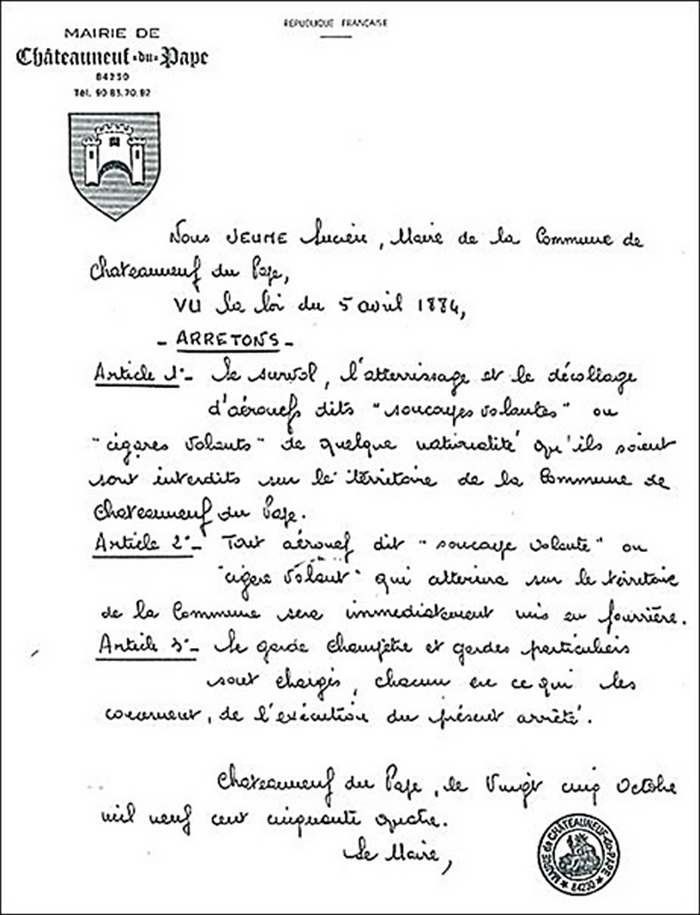 RÉPUBLIQUE FRANÇAISE
MAIRIE DE
Châteauneuf-du-Pape
84230
Tél. 90.83.70.92
Nous JEUNE Lucien, Maire de la Commune de
Chateauneuf du Pape,
VU la loi du 5 avril 1884,
- ARRETONS -
Article 1°- Le survol, l'atterrissage et le décollage
d'aéronefs dits "soucoupes volantes" ou
"cigares volants" de quelque nationalité qu'ils soient
sont interdits sur le territoire de la Commune de
Chateauneuf du Pape.
Article 2°- Tout aéronef dit "soucoupe volante" ou
"cigare volant" qui atterrira sur le territoire
de la Commune sera immediatement mis en fourrière.
Article 3°- Le garde champêtre et gardes particuliers
sont chargés, chacun en ce qui les
concernent, de l'exécution du présent arrêté.
Chateauneuf du Pape, le Vingt cinq Octobre
mil neuf cent cinquante quatre.
Le Maire,
MAIRIE de CHÂTEAUNEUF-du-PAPE
84230